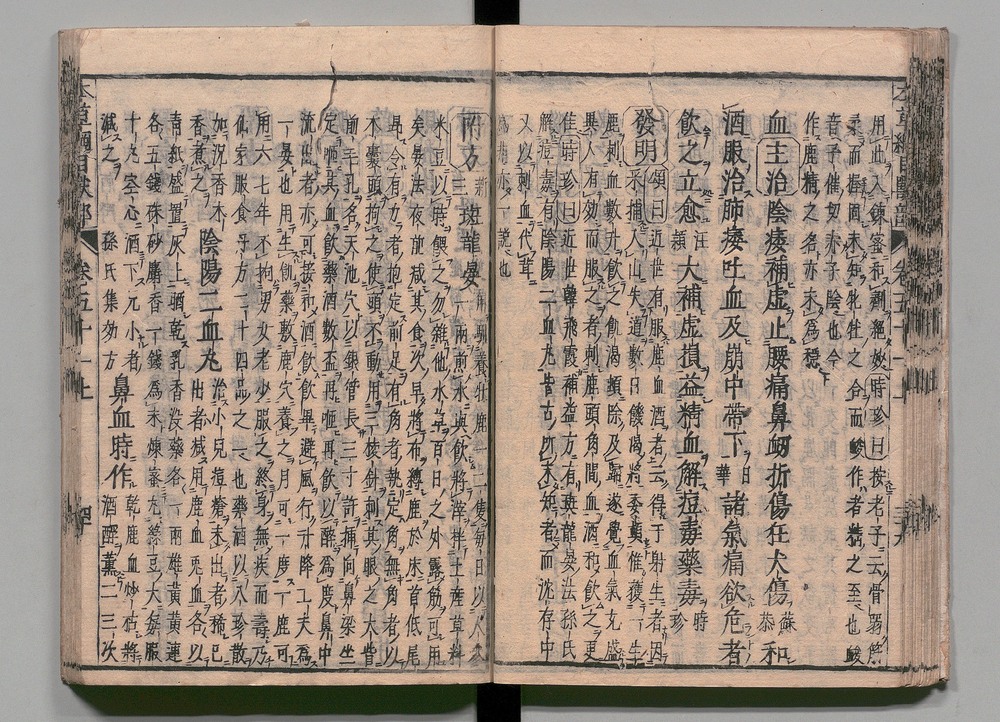 用此入鍊蜜和劑絕妙時珍曰按老子云骨弱筋
柔而握固未知牝牡之合而峻作者精之至也峻
音子催切赤子陰也今
作鹿精之名亦未爲穩
血主治陰痿補虛止腰痛鼻衂折傷狂犬傷蘇恭和
酒服治肺痿吐血及崩中帶下日華諸氣痛欲危者
飲之立愈汪穎大補虛損益精血解痘毒藥毒時珍
發明頌曰近世有服鹿血酒者云得于射生者因
采捕入山失道數日饑渴將委頓惟獲一生
鹿刺血數升飲之飢渴頓除及歸遂覺血氣充盛
異人有効而服之者刺鹿頭角間血酒和飲之更
佳時珍曰近世韓飛霞補益方有斑龍宴法孫氏
解痘毒有陰陽二血丸皆古所未知者而沈存中
又以刺血代茸
附方新斑龍宴
米豆以時餵之勿雜他水草百日之外露筋可用
矣宴時先夜前減其食次早將布縛鹿於床首低尾
昂令有力者抱定前足有角者執定角無角者以
木囊頭拘之使頭不動用三稜針刺其眼之大眥
前毛孔名天池穴以銀管長三寸許插向鼻梁坐
定咂其血飲藥酒數盃再咂再飲以醉爲度鼻中
流出者亦可接和酒飲飲畢避風行升降工夫爲
一宴也用生肌藥敷鹿穴養之月可一度一鹿可
用六七年不拘男女老少服之終身無疾而壽乃
仙家服食丹方二十四品之一也藥酒以八珍散
加沉香木香煮之
陰陽二血丸治小兒痘瘡未出者稀已出者減用鹿血兔血各以
青紙盛置灰上晒乾乳香沒藥各一兩雄黃黃連
各五錢硃砂麝香一錢爲末煉蜜丸綠豆大每服
十丸空心酒下兒小者減之孫氏集効方
鼻血時作乾鹿血炒枯將酒醅薰二三次
本草綱目獸部
卷五十一上